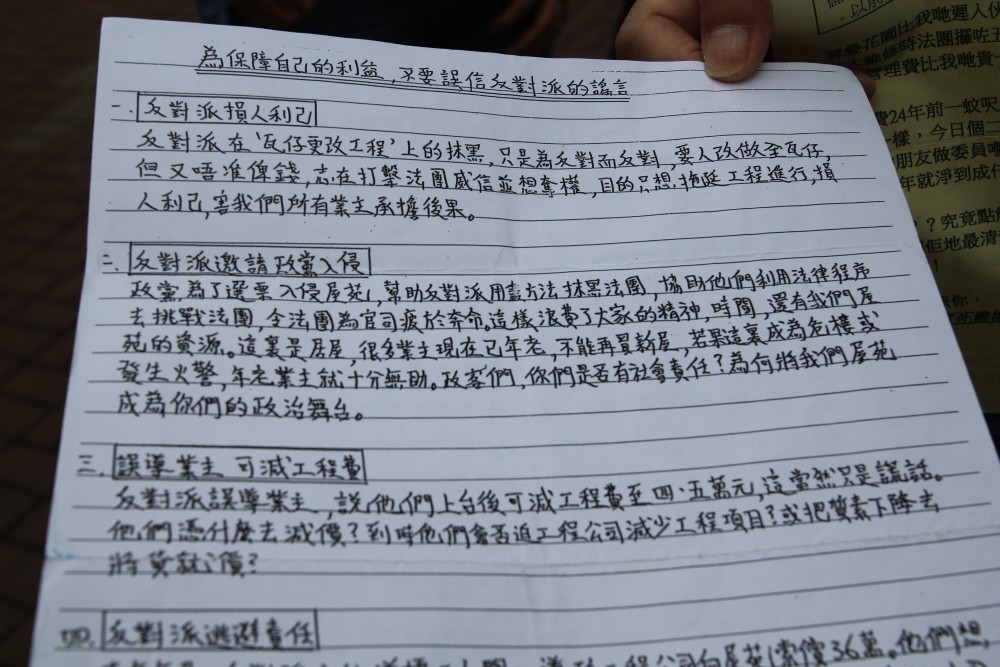 為保障自己的利益，不要誤信反對派的謠言
一. 反對派損人利己
反對派在‘瓦仔更改工程’上的抹黑,只是為反對而反對,要人改做全瓦仔,
但又唔准俾錢,志在打擊法團威信並想奪權,目的只想拖延工程進行,損
人利己,害我們所有業主承擔後果。
二. 反對派邀請政黨入侵
政黨為了選票入侵屋苑,幫助反對派用盡方法抹黑法團,協助他們利用法律程序
去挑戰法團,令法團為官司疲於奔命。這樣浪費了大家的精神,時間,還有我們屋
苑的資源。這裏是居屋,很多業主現在已年老,不能再買新屋,若果這裏成為危樓或
發生火警,年老業主就十分無助。政客們,你們是否有社會責任?為何將我們屋苑
成為你們的政治舞台。
三. 誤導業主 可減工程費
反對派誤導業主,說他們上台後可減工程費至四、五萬元,這當然只是謊話。
他們憑什麼去減價?到時他們會否迫工程公司減少工程項目?或把質素下降去
將貨就價?
四. 反對派逃避責任
工程公司向屋苑索償36萬。他們想,
以前
花園比我哋遲入伙
維修時法團攞咗五
管理費比我哋貴
費24年前一蚊呎
樣，今日個二
朋友做委員嘅
年就淨到成什
？究竟點
佢地最清